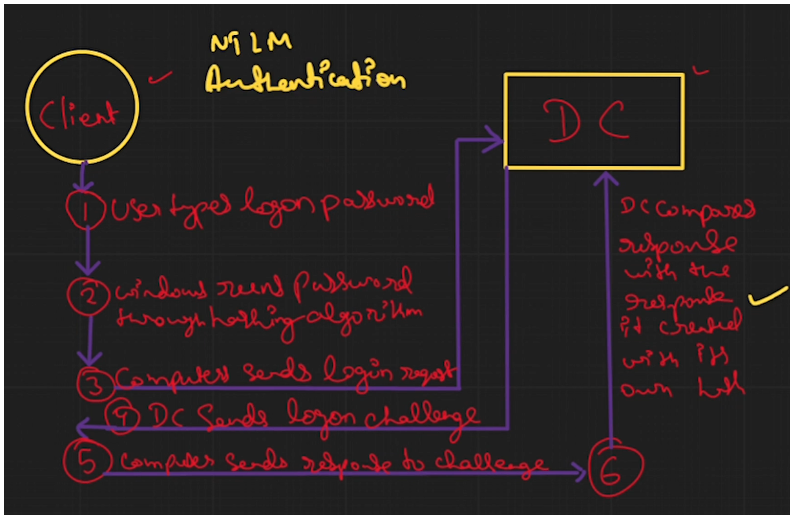 NTLM
Authentication
Client
DC
1 User types logon password
2 windows runs password
through hashing algorithm
3 Computer sends login reqest
4 DC Sends logon challenge
5 Computer sends response to challenge
6
DC Compares
response
with the
response
it created
with its
own hash